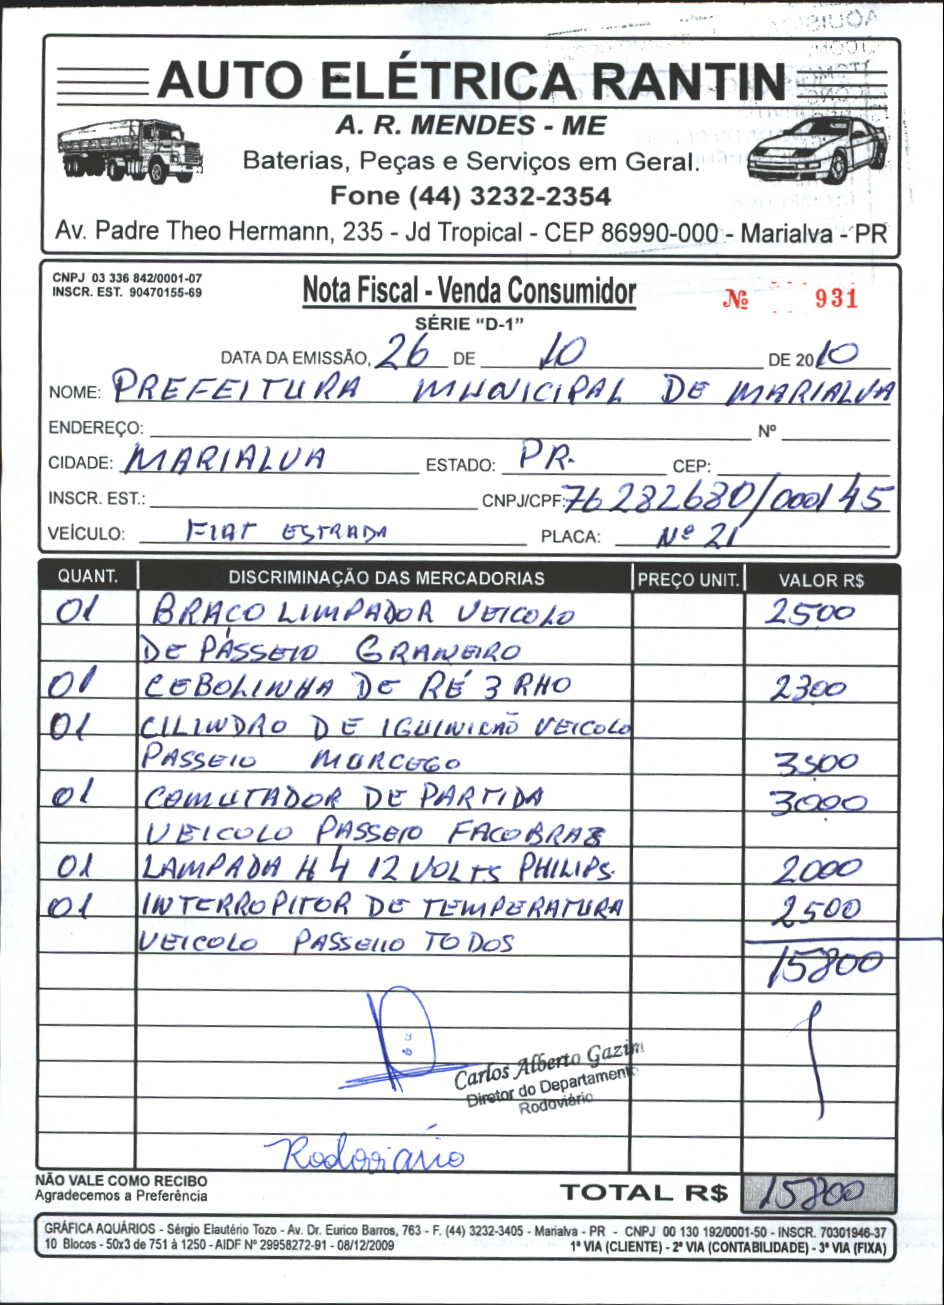 AUTO ELÉTRICA RANTIN
A. R. MENDES - ME
Baterias, Peças e Serviços em Geral.
Fone (44) 3232-2354
Av. Padre Theo Hermann, 235 - Jd Tropical - CEP 86990-000 - Marialva - PR
CNPJ 03 336 842/0001-07
INSCR. EST. 90470155-69
Nota Fiscal - Venda Consumidor
Nº 931
SÉRIE “D-1”
DATA DA EMISSÃO, 26 DE 10 DE 2010
NOME: PREFEITURA MUNICIPAL DE MARIALVA
ENDEREÇO: Nº
CIDADE: MARIALVA ESTADO: PR. CEP:
INSCR. EST.: CNPJ/CPF: 76282680/0001 45
VEÍCULO: FIAT ESTRADA PLACA: Nº 21
QUANT. DISCRIMINAÇÃO DAS MERCADORIAS PREÇO UNIT. VALOR R$
01 BRAÇO LIMPADOR VEICOLO 2500
DE PASSEIO GRANEIRO
01 CEBOLINHA DE RÉ 3 RHO 2300
01 CILINDRO DE IGUINICÃO VEICOLO
PASSEIO MORCEGO 3500
01 COMUTADOR DE PARTIDA 3000
VEICOLO PASSEIO FACOBRAS
01 LAMPADA H4 12 VOLTS PHILIPS. 2000
01 INTERROPITOR DE TEMPERATURA 2500
VEICOLO PASSEIO TODOS
15800
Carlos Alberto Gazim
Diretor do Departamento
Rodoviário
Rodoviário
NÃO VALE COMO RECIBO
Agradecemos a Preferência
TOTAL R$ 15800
GRÁFICA AQUÁRIOS - Sérgio Elautério Tozo - Av. Dr. Eurico Barros, 763 - F. (44) 3232-3405 - Marialva - PR - CNPJ 00 130 192/0001-50 - INSCR. 70301946-37
10 Blocos - 50x3 de 751 à 1250 - AIDF Nº 29958272-91 - 08/12/2009 1ª VIA (CLIENTE) - 2ª VIA (CONTABILIDADE) - 3ª VIA (FIXA)